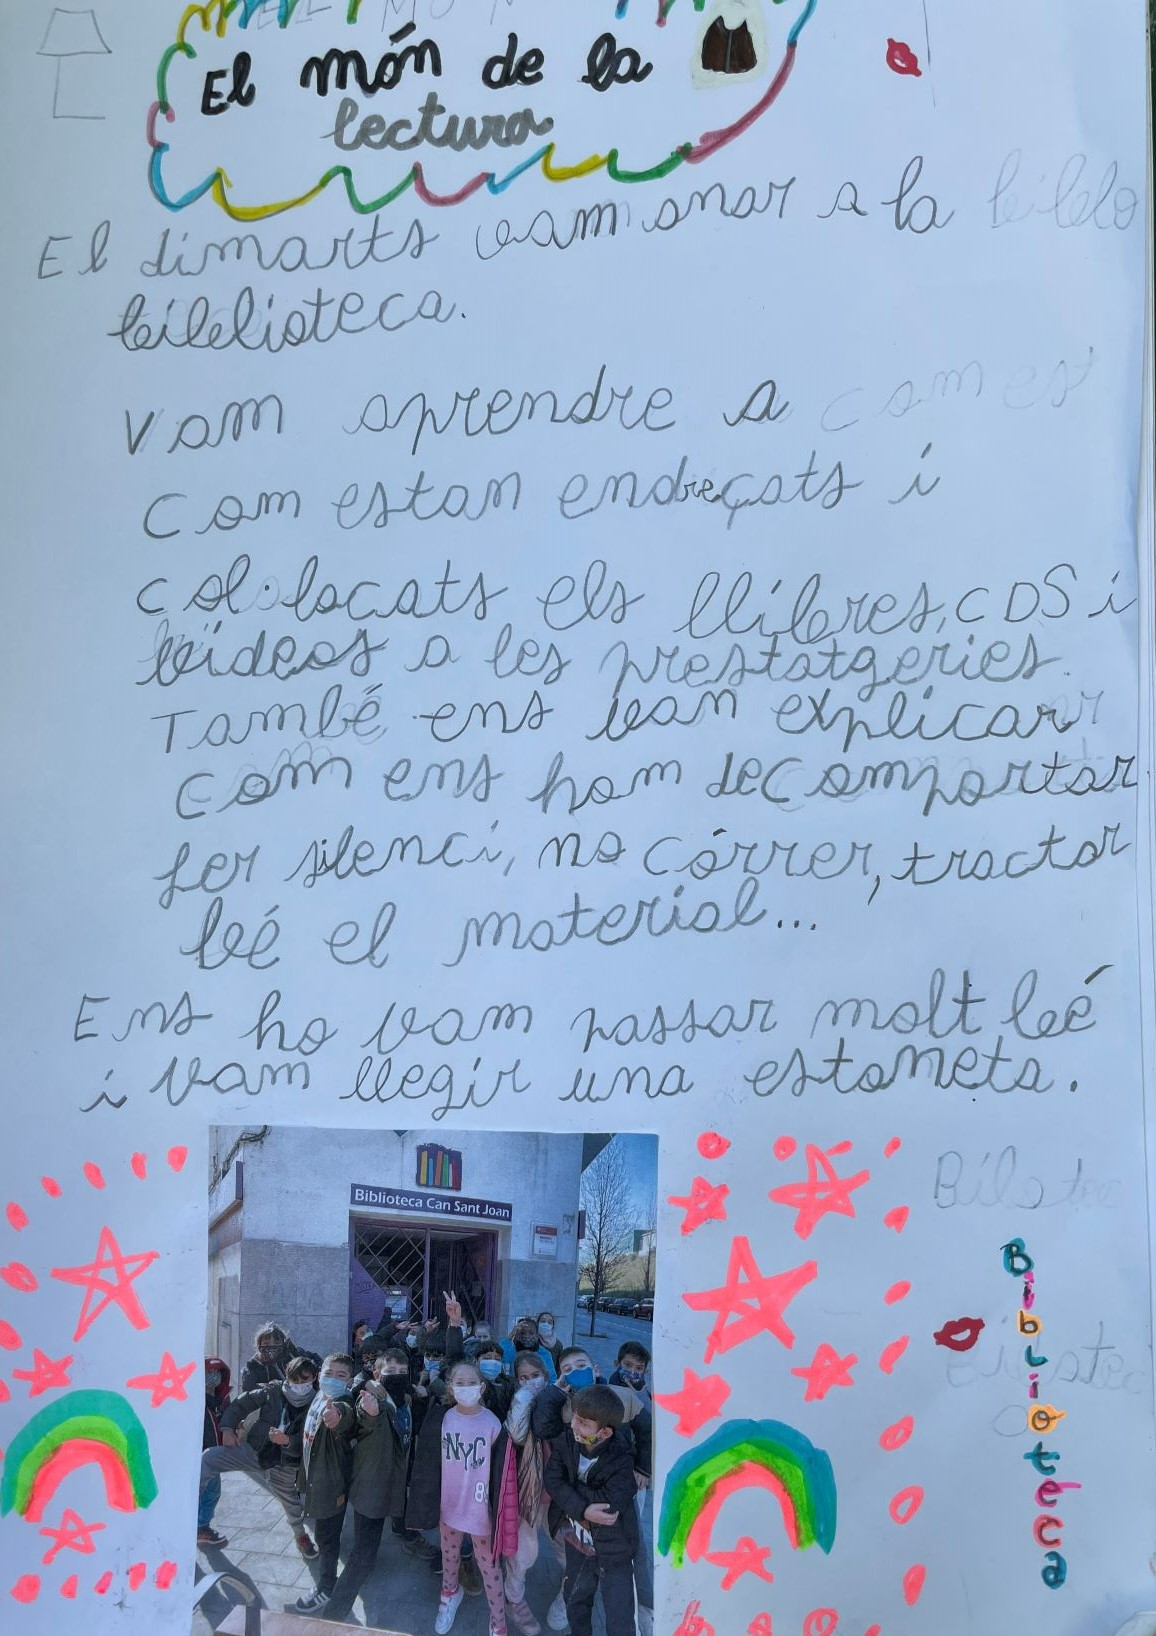 El món de la
lectura
El dimarts vam anar a la
biblioteca.
Vam aprendre a com est
com estan endreçats i
col·locats els llibres, CDS i
vídeos a les prestatgeries.
També ens van explicar
com ens ham de comportar
fer silenci, no córrer, tractar
bé el material...
Ens ho vam passar molt bé
i vam llegir una estoneta.
Biblioteca Can Sant Joan
NYC
Biblioteca